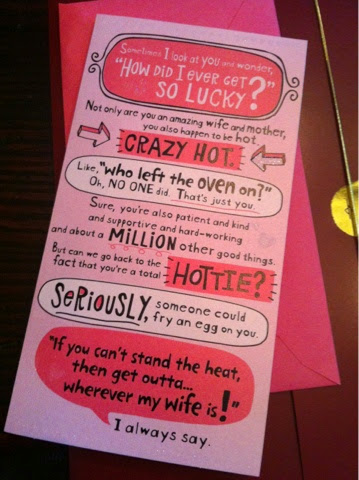 Sometimes I look at you and wonder,
"How did I ever get
so lucky?"
Not only are you an amazing wife and mother,
you also happen to be hot.
CRAZY HOT.
Like, "who left the oven on?"
Oh, NO ONE did. That's just you.
Sure, you're also patient and kind
and supportive and hard-working
and about a MILLION other good things.
But can we go back to the
fact that you're a total HOTTIE?
SeRiOUSLY, someone could
fry an egg on you.
"If you can't stand the heat,
then get outta...
wherever my wife is!"
I always say.